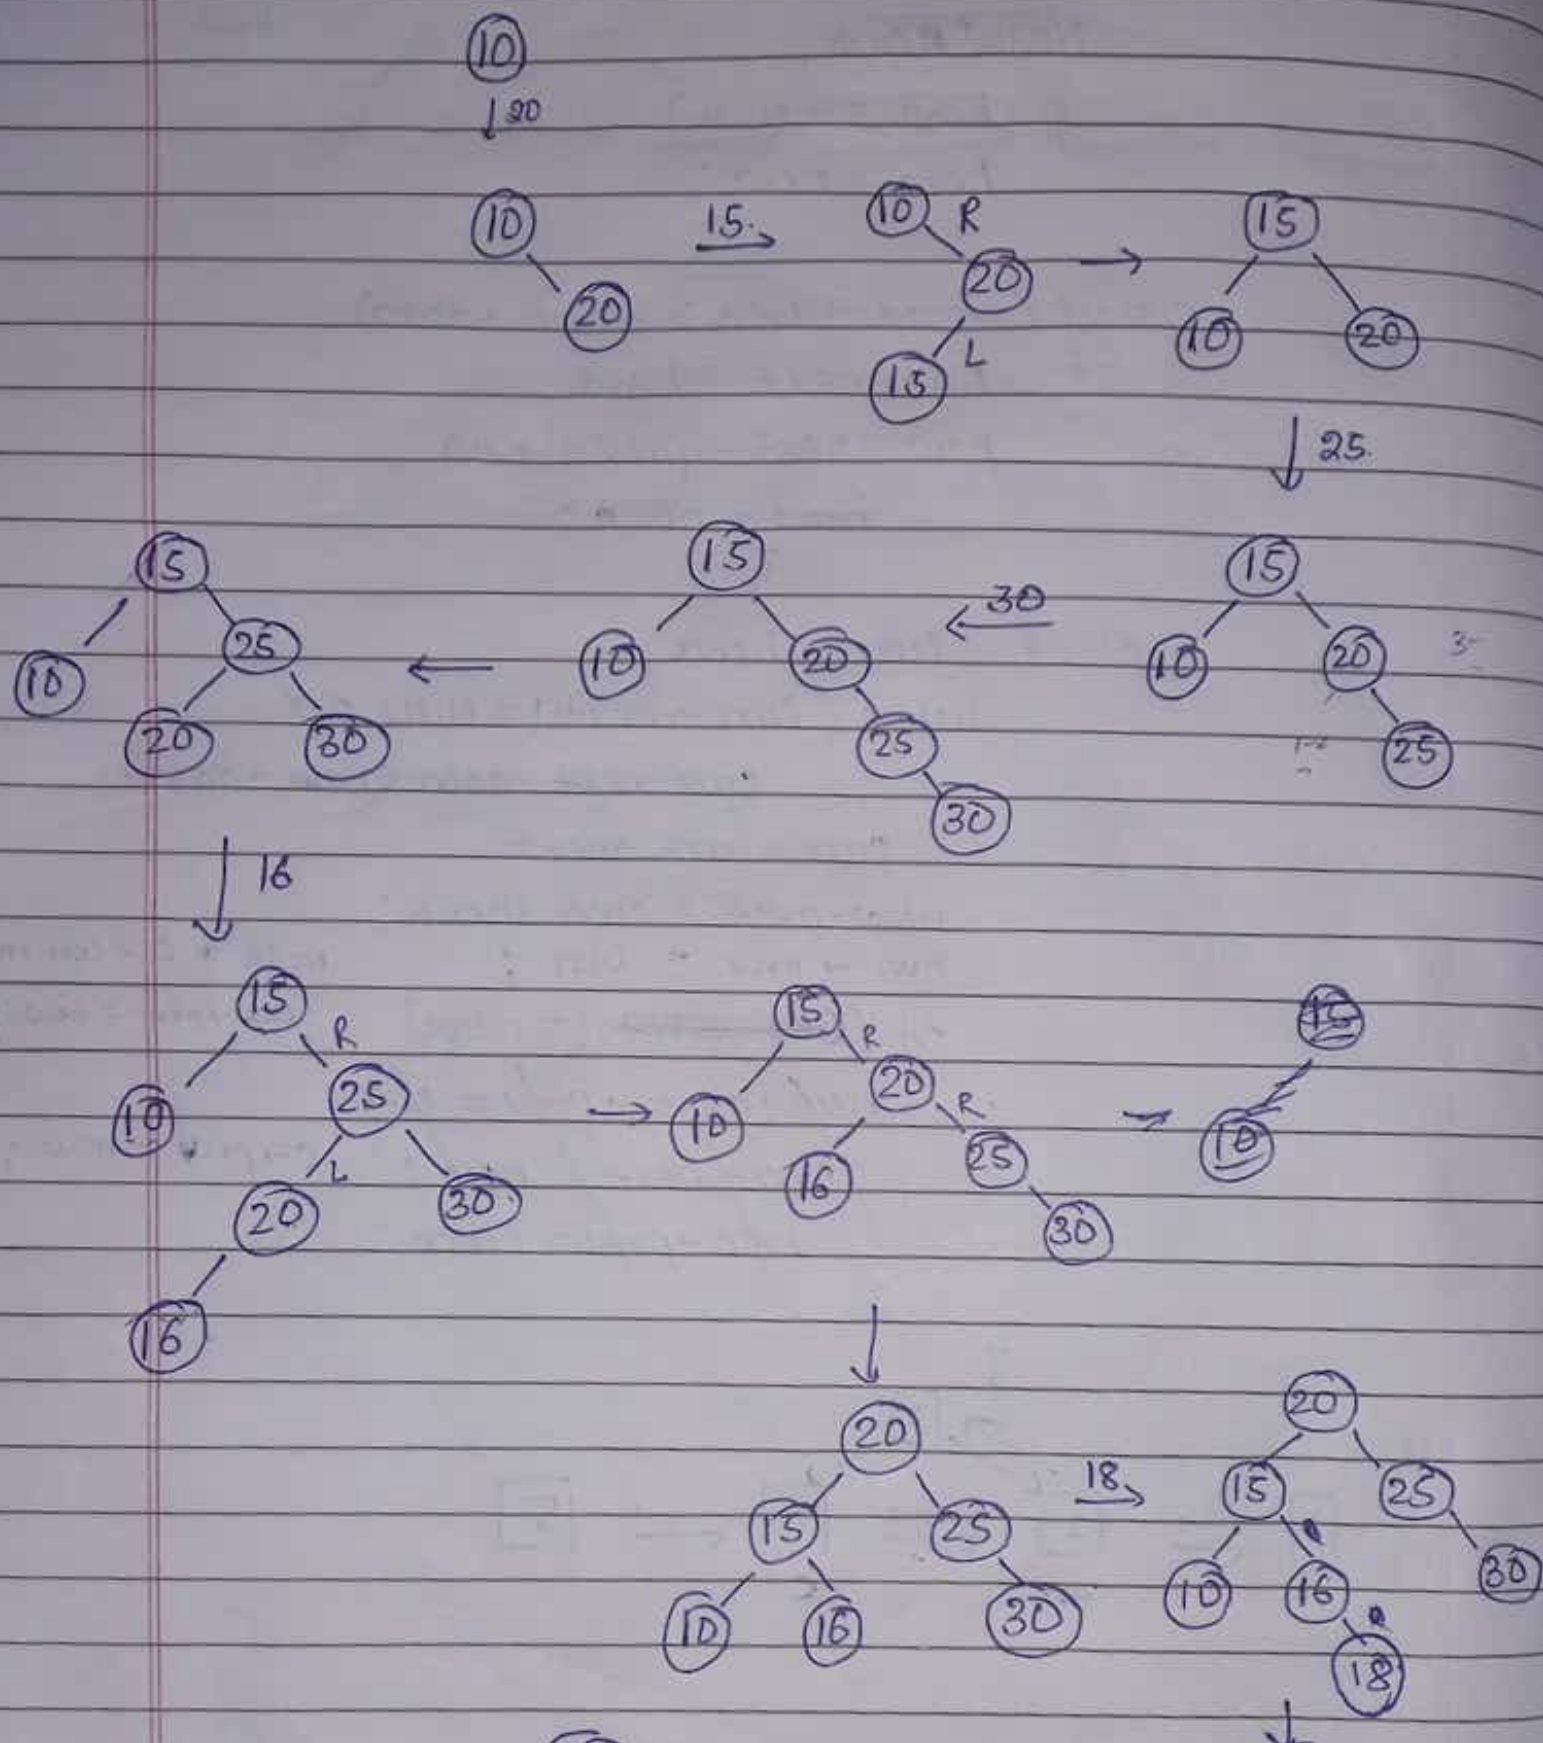 10
20
10
20
15.
10
R
20
L
15
15
10
20
25.
15
10
20
25
30
15
10
20
25
30
15
10
25
20
30
16
15
R
10
25
L
20
30
16
15
R
10
20
R
16
25
30
15
10
20
15
25
10
16
30
18
20
15
25
10
16
30
18